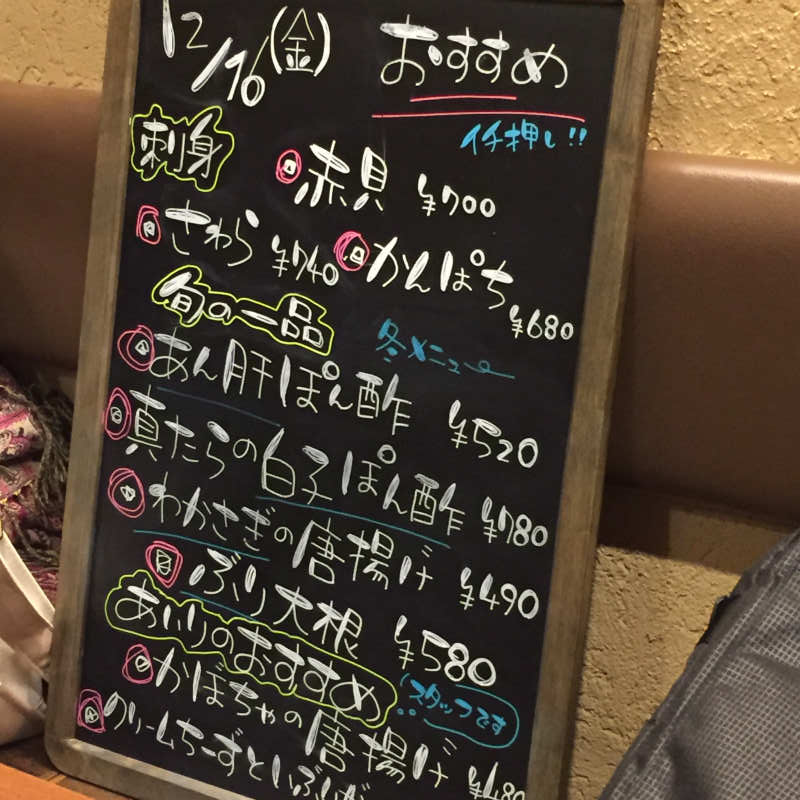 12/16(金) おすすめ
イチ押し!!
刺身
赤貝 ¥700
さわら ¥740 かんぱち ¥680
旬の一品
冬メニュー
あん肝ぽん酢 ¥520
真たらの白子ぽん酢 ¥780
わかさぎの唐揚げ ¥490
ぶり大根 ¥580
あいりのおすすめ
(スタッフです
かぼちゃの唐揚げ ¥480
クリームちーずといぶりが